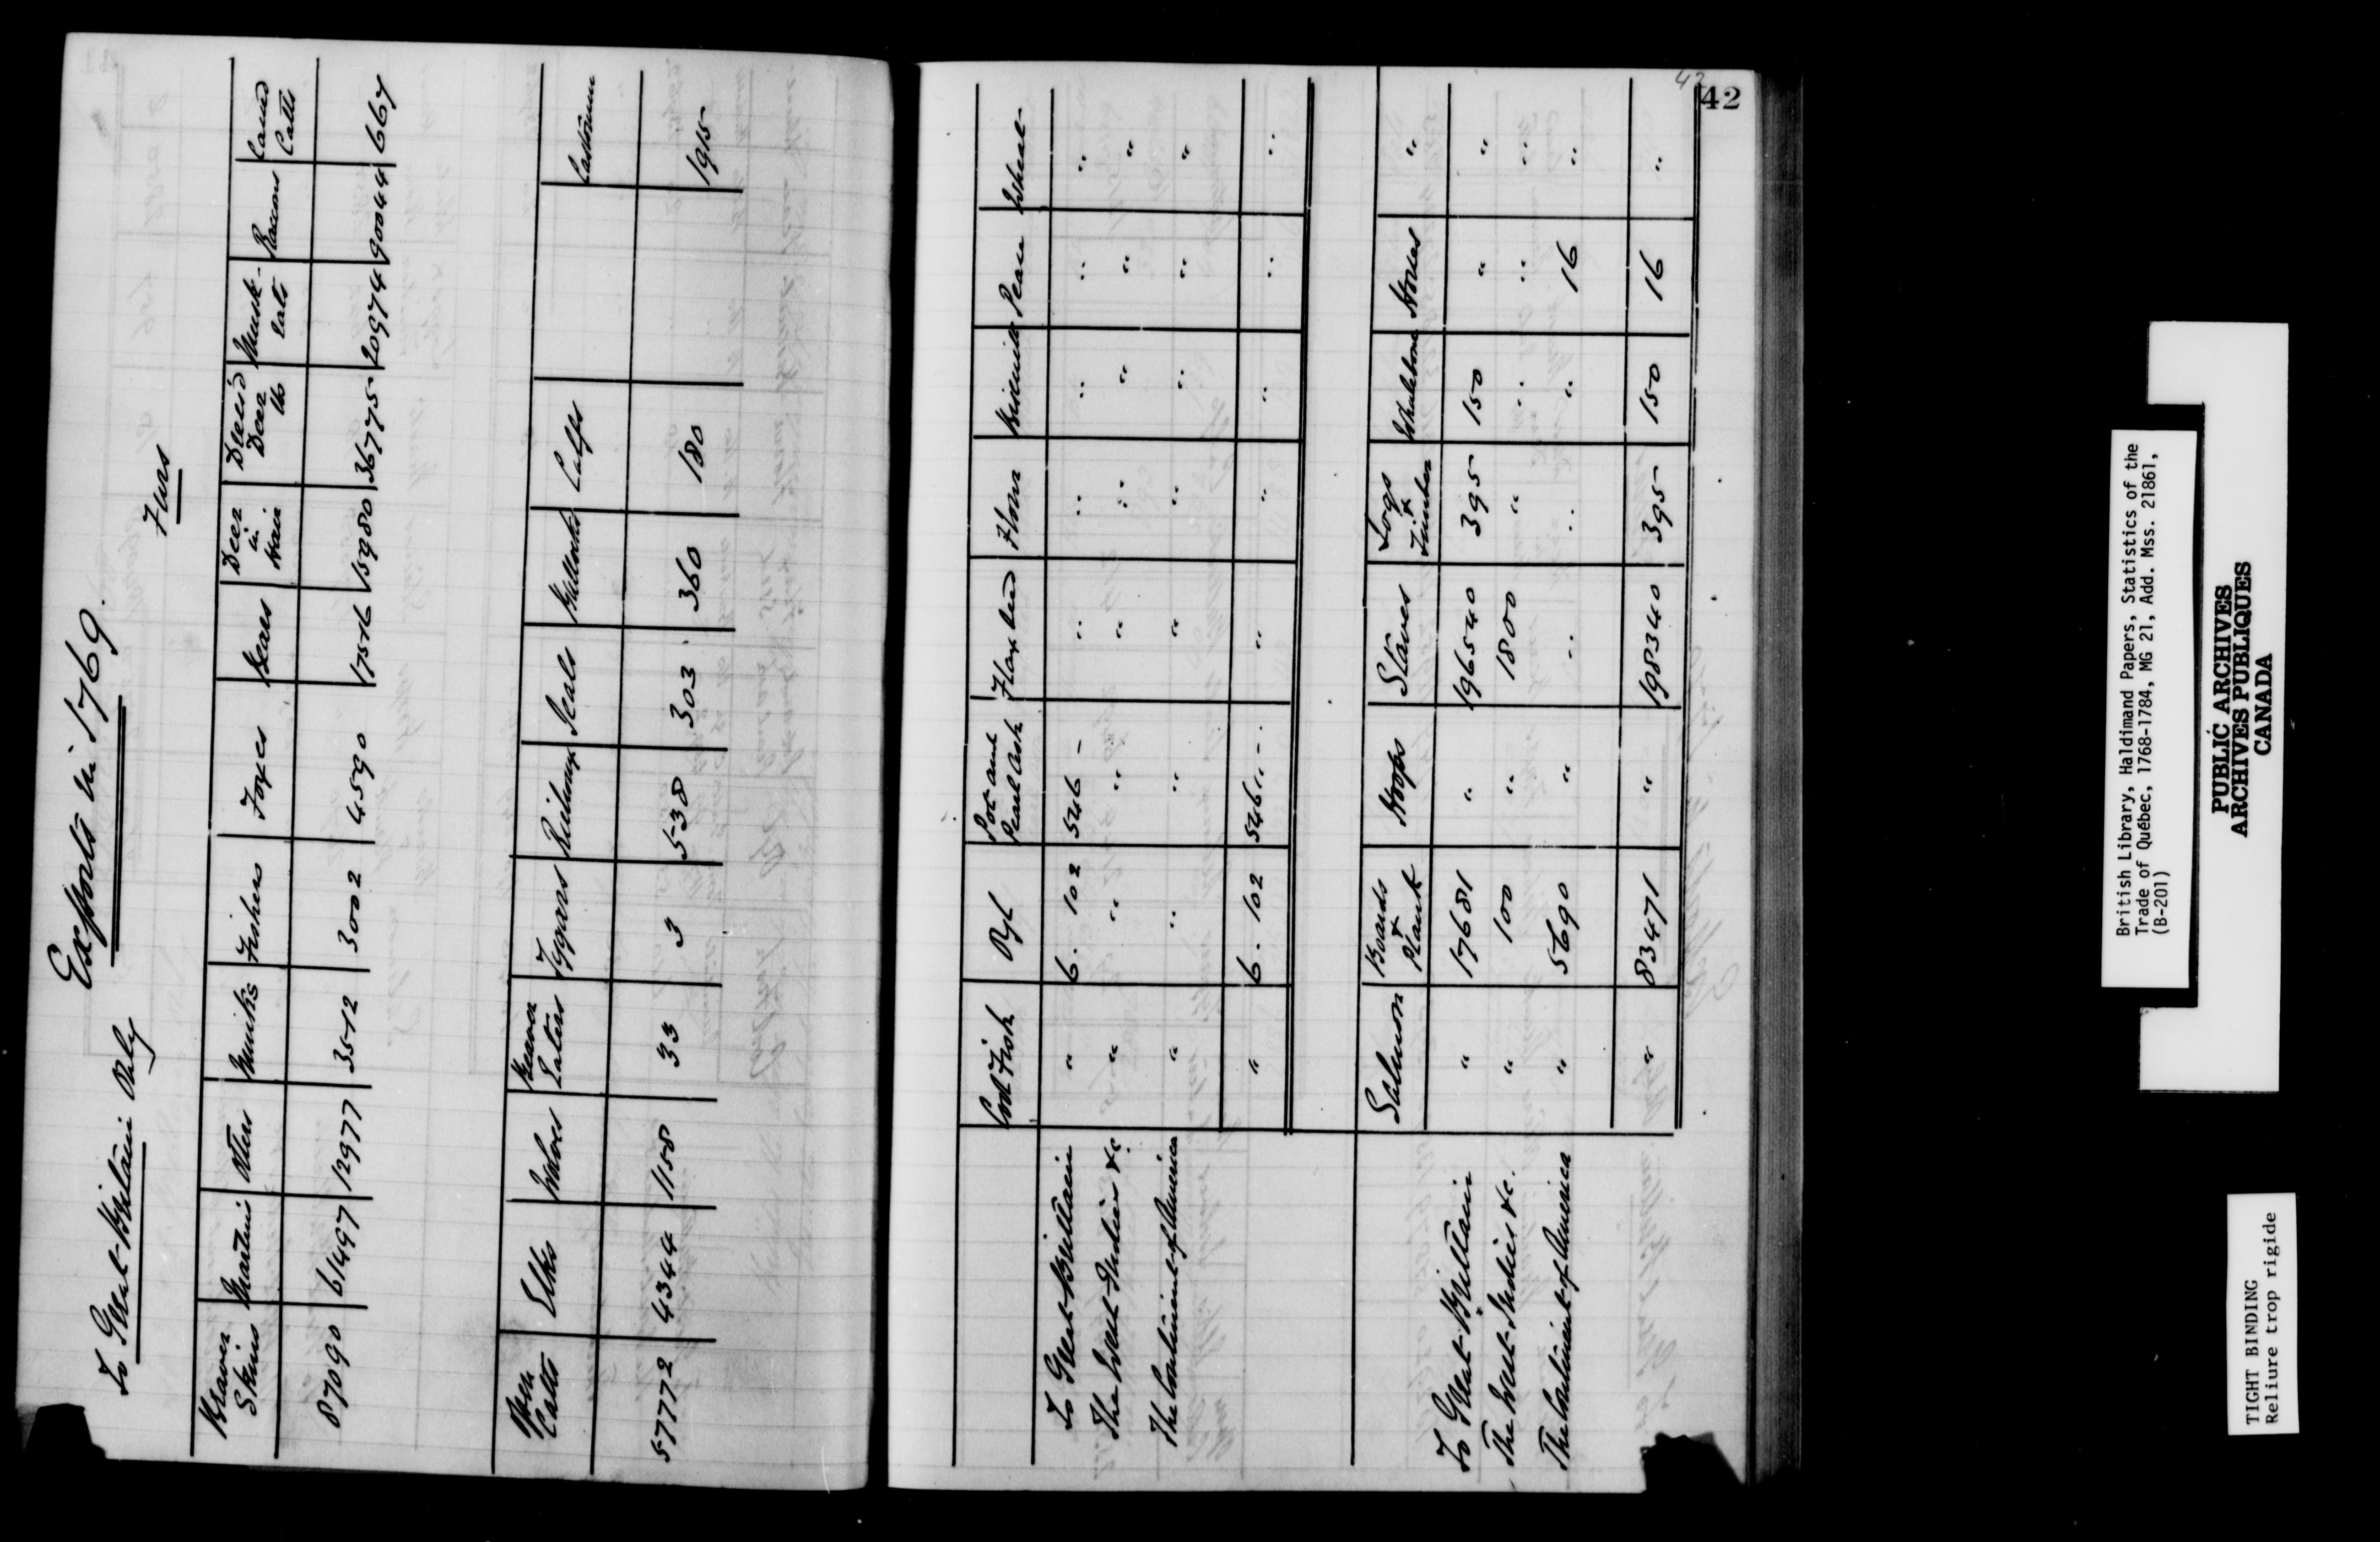 Exports in 1769.
To Great-Britain Only
Furs
Beaver Skins | Martins | Otters | Minks | Fishers | Foxes | Bears | Deer in hair | Dress'd Deer lbs | Musk-rats | Raccoons | Cased Catts
87090 | 61497 | 12977 | 3512 | 3002 | 4590 | 17516 | 15980 | 36775 | 20974 | 90044 | 667
Open Catts | Elks | Wolves | Beaver Eaters | Tygars | Seals | Bullocks | Calfs | Castorum
57772 | 4344 | 1158 | 33 | 3 | 538 | 303 | 360 | 180 | 1915
42
42
Cod Fish | Oyl | Pot and Pearl Ash | Flax Seed | Flour | Biscuit | Pease | Wheat
To Great-Brittain | " | 6. 102 | 546 - | " | " | " | " | "
The West-Indies &c. | " | " | " | " | " | " | " | "
The Continent of America | " | " | " | " | " | " | " | "
" | 6. 102 | 546 " - . | " | " | " | " | "
Salmon | Boards & Plank | Hoops | Staves | Logs & Timber | Whalebone | Horses | "
To Great-Brittain | " | 17681 | " | 196540 | 395 | 150 | " | "
The West-Indies &c. | " | 100 | " | 1800 | " | " | " | "
The Continent of America | " | 5690 | " | " | " | " | 16 | "
" | 83471 | " | 198340 | 395 | 150 | 16 | "
British Library, Haldimand Papers, Statistics of the
Trade of Québec, 1768-1784, MG 21, Add. Mss. 21861,
(B-201)
PUBLIC ARCHIVES
ARCHIVES PUBLIQUES
CANADA
TIGHT BINDING
Reliure trop rigide